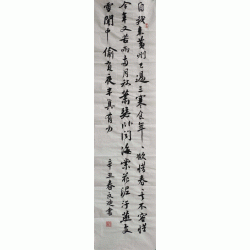 自我来黄州已過三寒食年年欲惜春春去不容惜
今年又苦雨两月秋蕭瑟卧聞海棠花泥污燕支
雪闇中偷負夜半真有力
辛丑春書